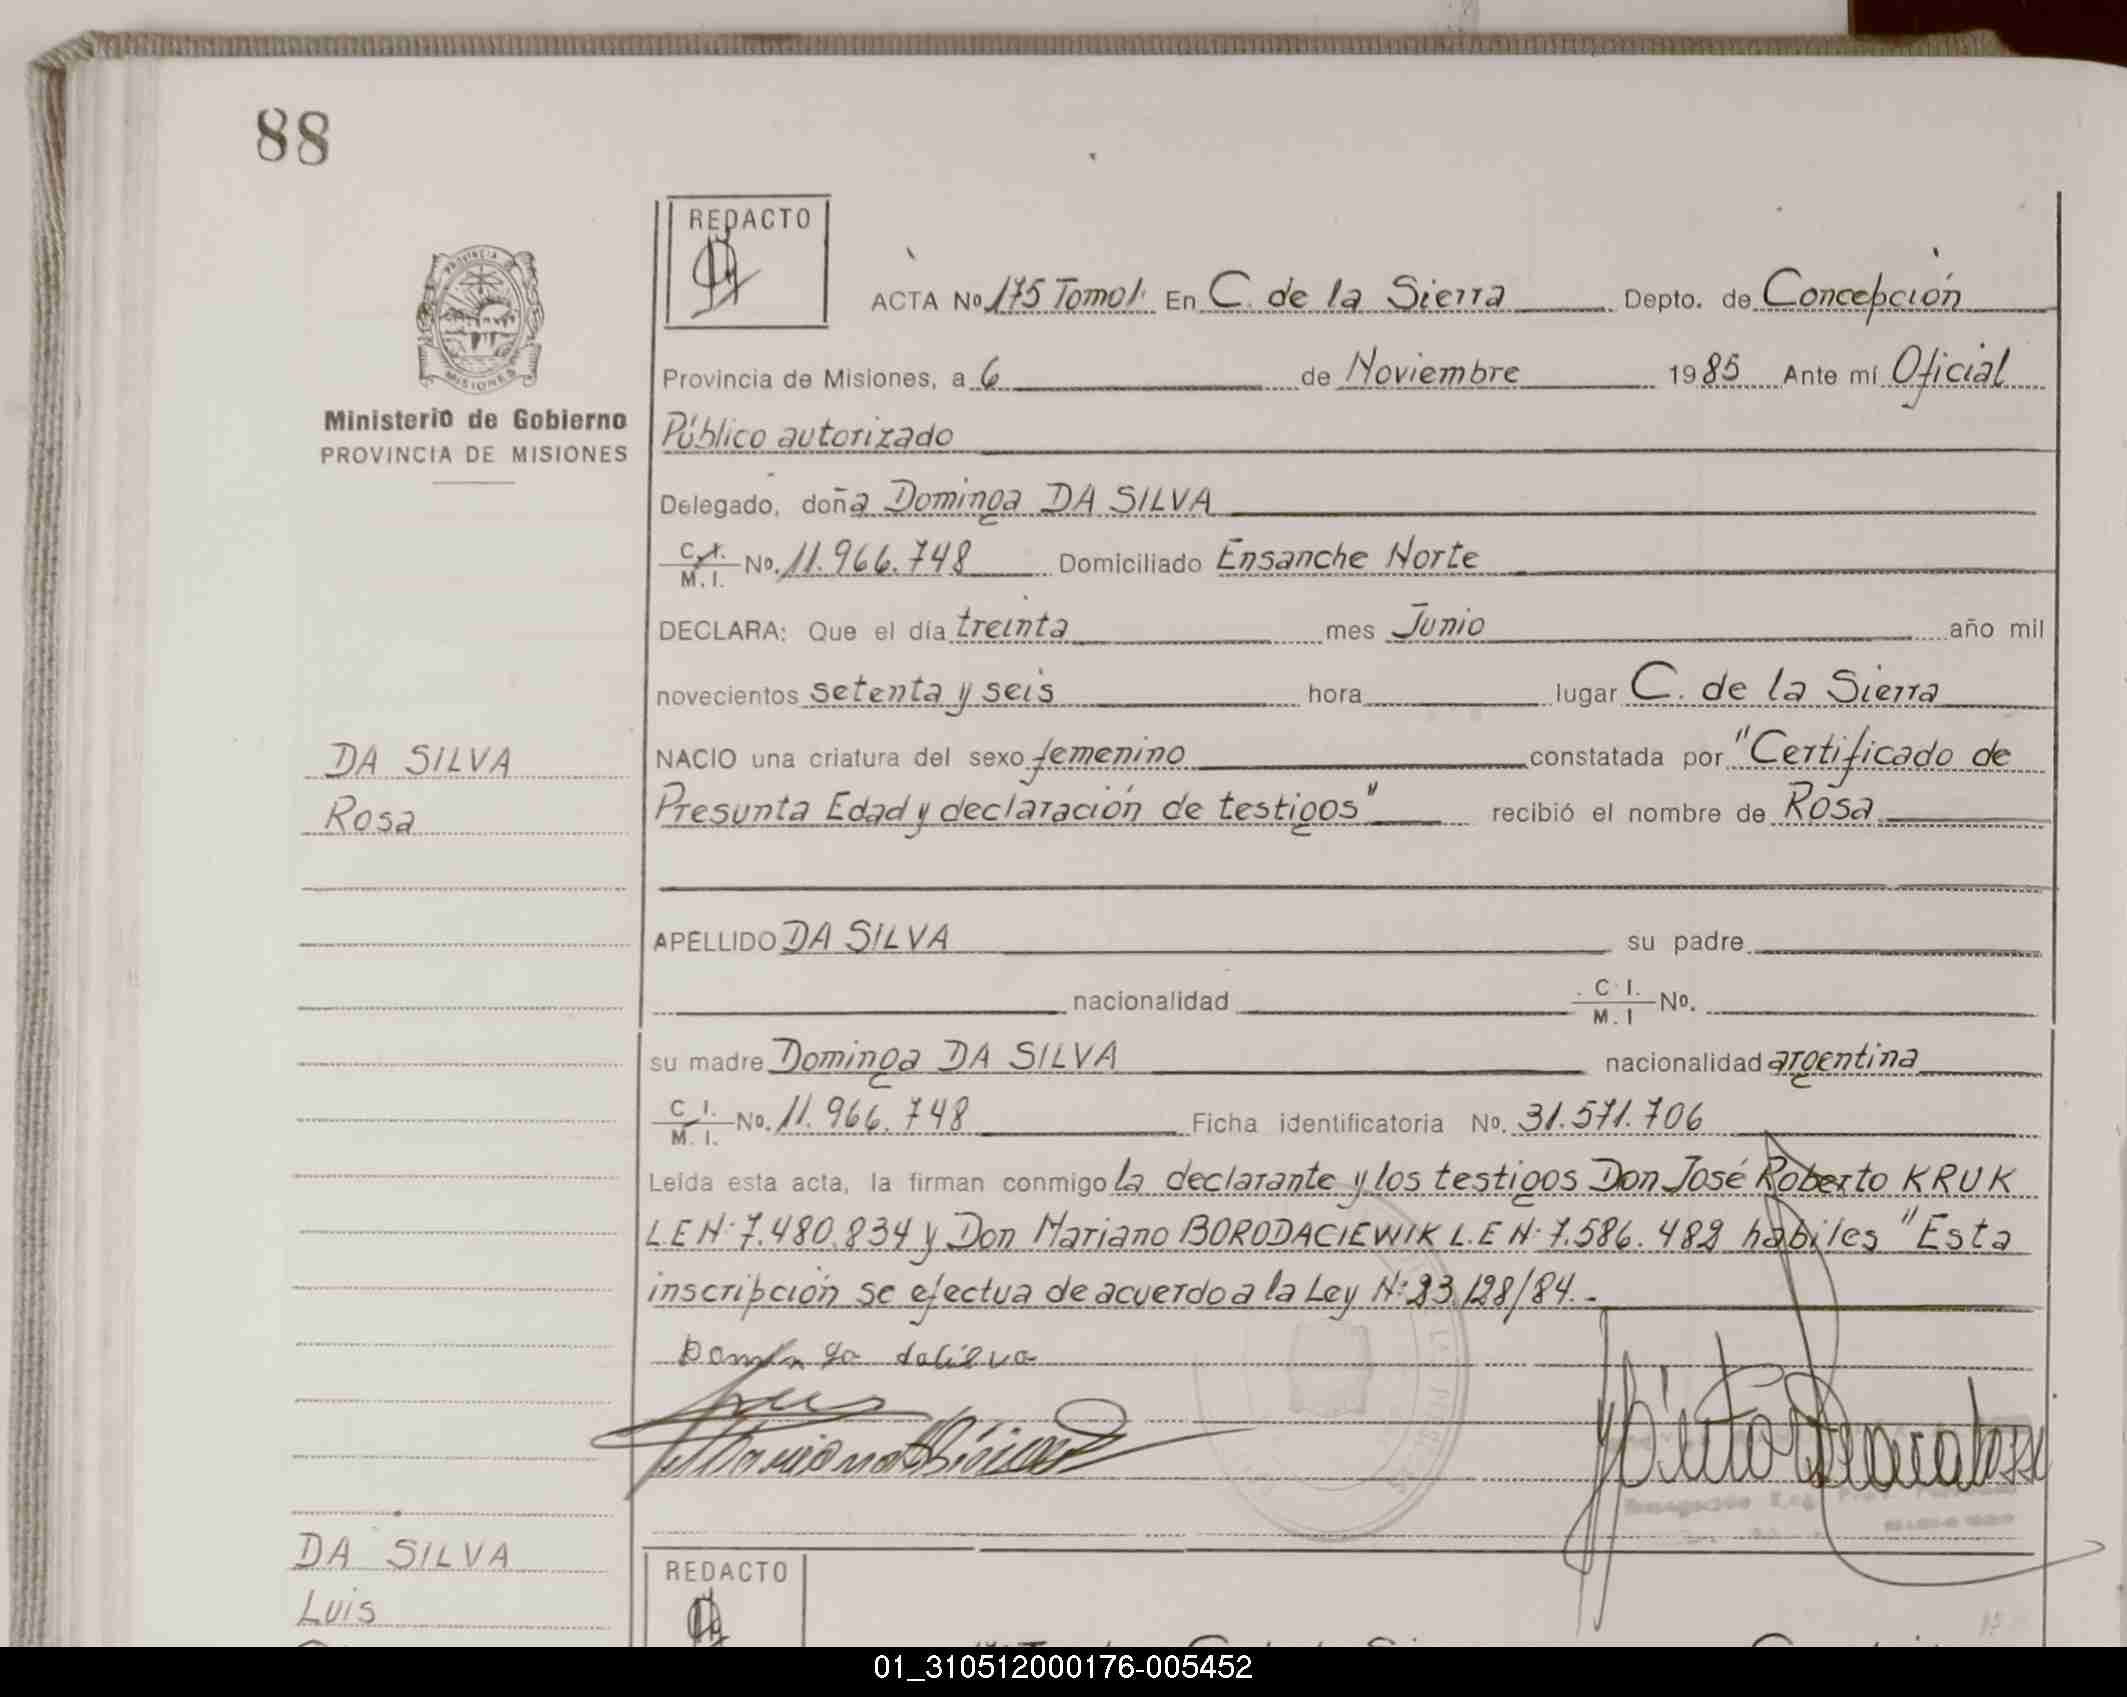 88
REDACTO
ACTA No 175 Tomo I. En C. de la Sierra Depto. de Concepción
PROVINCIA DE MISIONES
Provincia de Misiones, a 6 de Noviembre 1985 Ante mí Oficial
Ministerio de Gobierno
PROVINCIA DE MISIONES
Público autorizado
Delegado, doña Dominga DA SILVA
C.I. M.I. No. 11.966.748 Domiciliado Ensanche Norte
DECLARA: Que el día treinta mes Junio año mil
novecientos setenta y seis hora lugar C. de la Sierra
DA SILVA
NACIO una criatura del sexo femenino constatada por "Certificado de
Rosa
Presunta Edad y declaración de testigos" recibió el nombre de Rosa
APELLIDO DA SILVA su padre
nacionalidad C.I. M.I No.
su madre Dominga DA SILVA nacionalidad argentina
C.I. M.I. No. 11.966.748 Ficha identificatoria No. 31.571.706
Leída esta acta, la firman conmigo la declarante y los testigos Don José Roberto KRUK
L E N: 7.480.834 y Don Mariano BORODACIEWIK L.E N: 7.586.482 habiles "Esta
inscripción se efectua de acuerdo a la Ley N: 23.128/84.-
DA SILVA
Luis
REDACTO
01_310512000176-005452